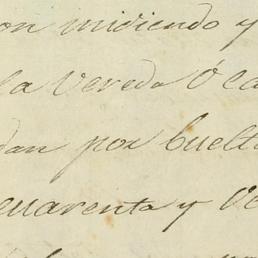 on midiendo y
la Vereda ó ca
dan por buelta
cuarenta y Ve